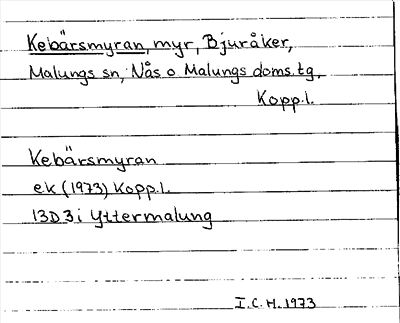 Kebärsmyran, myr, Bjuråker,
Malungs sn, Nås o Malungs doms.tg,
Kopp.l.
Kebärsmyran
ek (1973) Kopp.l.
13D3i Yttermalung
I.C.H. 1973